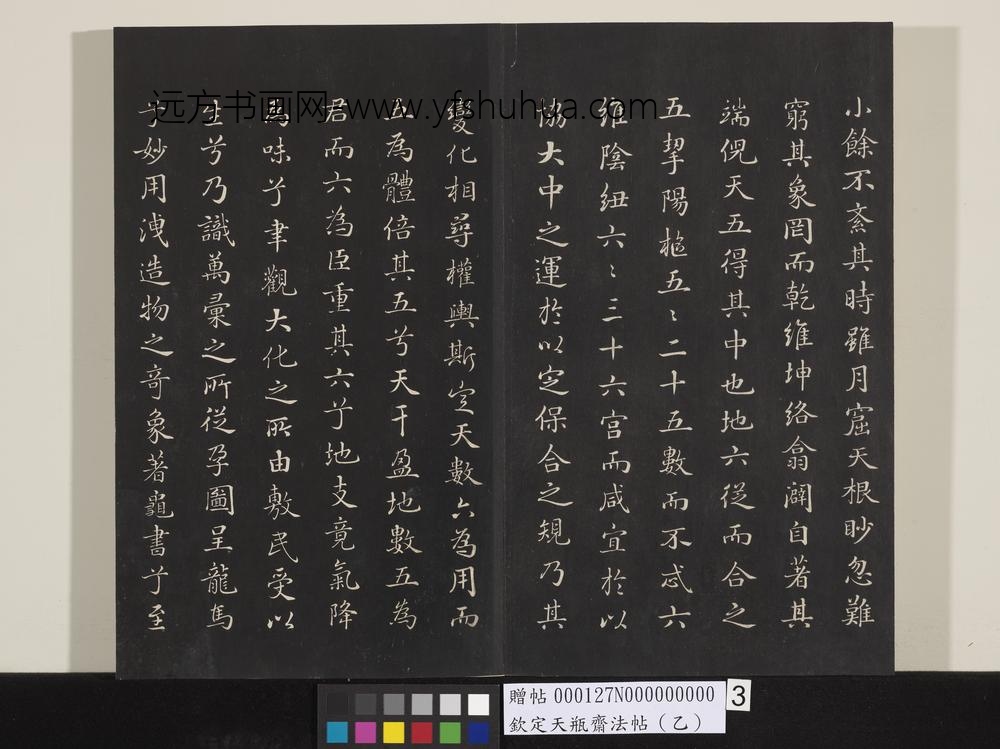 小餘不紊其時雖月窟天根眇忽難
窮其象罔而乾維坤絡翕闢自著其
端倪天五得其中也地六從而合之
五挈陽樞五〻二十五數而不忒六
維陰紐六〻三十六宮而咸宜於以
協大中之運於以定保合之規乃其
變化相尋權輿斯定天數六為用而
五為體倍其五兮天干盈地數五為
君而六為臣重其六兮地支竟氣降
為味兮聿觀大化之所由敷民受以
生兮乃識萬彙之所從孕圖呈龍馬
兮妙用洩造物之奇象著龜書兮至
远方书画网 www.yfshuhua.com
贈帖 000127N000000000
欽定天瓶齋法帖（乙）
3